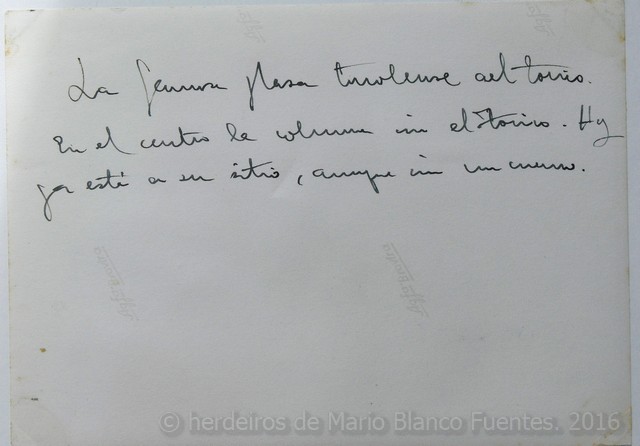 La famosa plaza turolense del torico.
En el centro la columna sin el "Torico. Hoy
ya está en su sitio, aunque sin un cuerno.
© herdeiros de Mario Blanco Fuentes. 2016